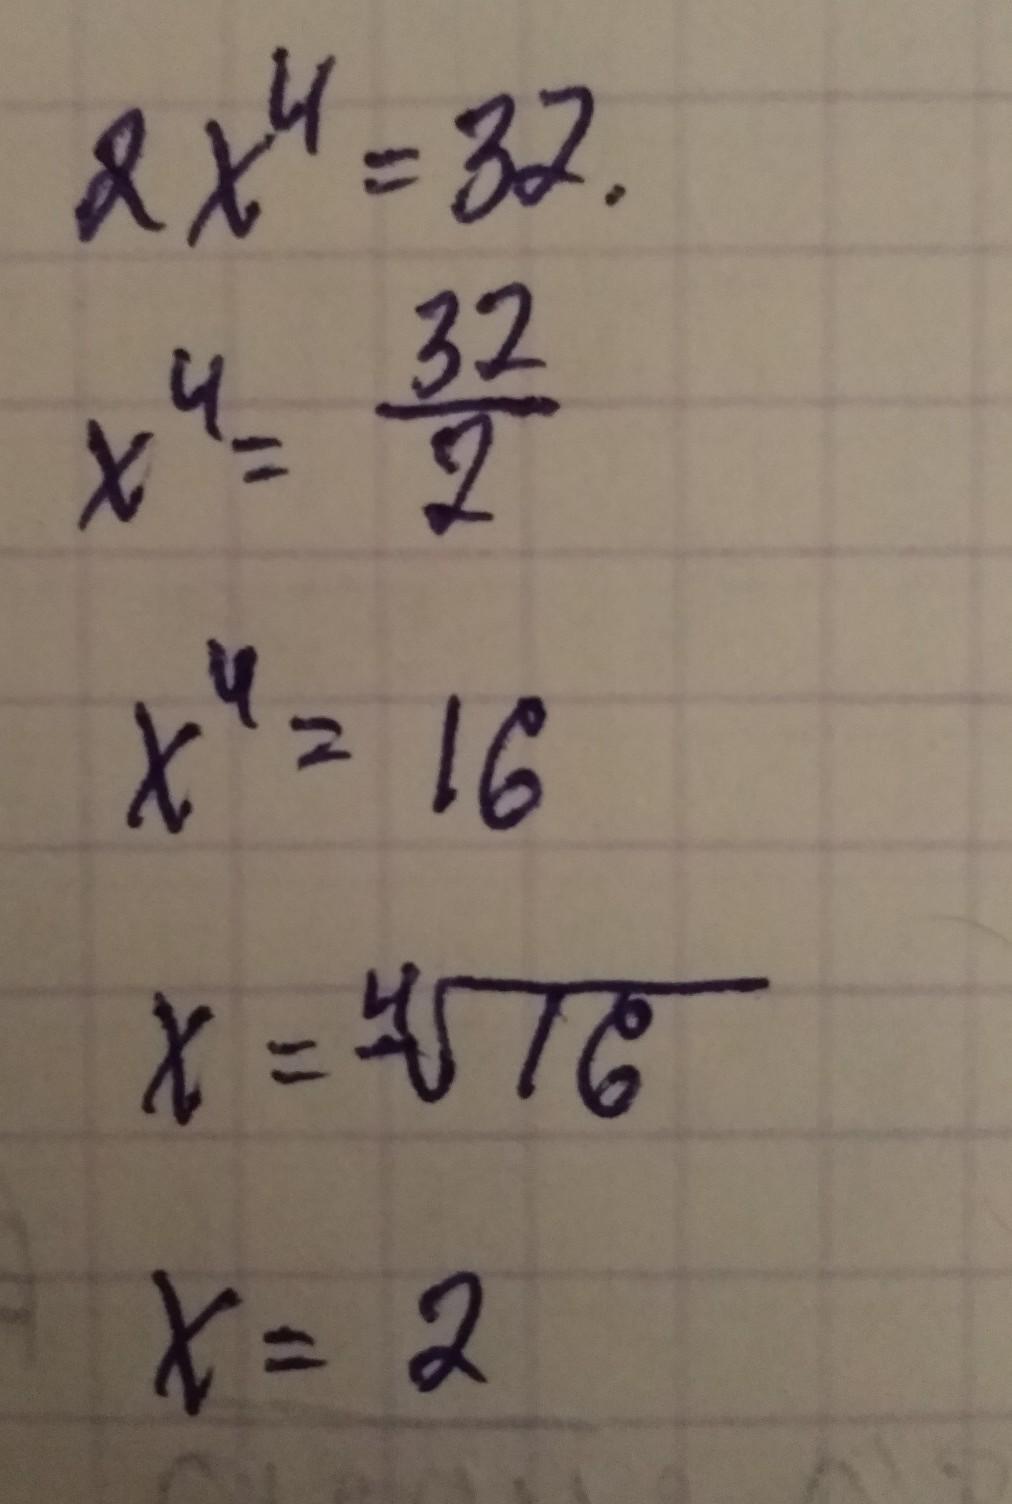 2x⁴ = 32.
x⁴ = 32/2
x⁴ = 16
x = ⁴√16
x = 2